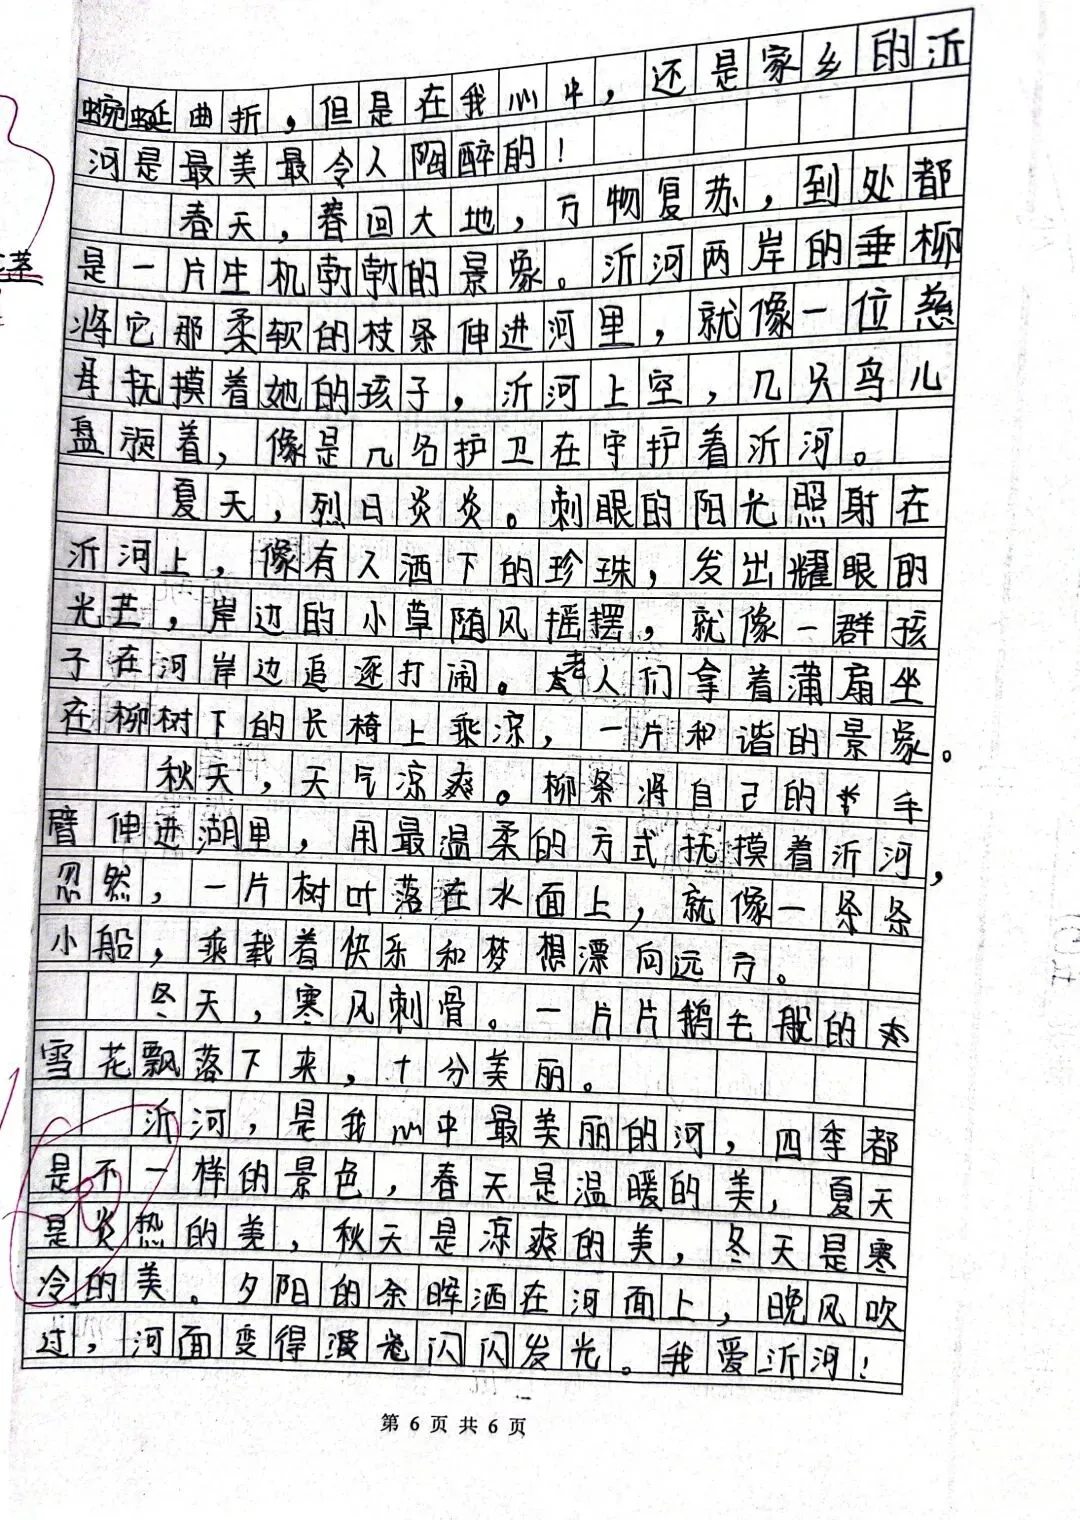 蜿蜒曲折，但是在我心中，还是家乡的沂
河是最美最令人陶醉的！
春天，春回大地，万物复苏，到处都
是一片生机勃勃的景象。沂河两岸的垂柳
将它那柔软的枝条伸进河里，就像一位慈
母抚摸着她的孩子，沂河上空，几只鸟儿
盘旋着，像是几名护卫在守护着沂河。
夏天，烈日炎炎。刺眼的阳光照射在
沂河上，像有人洒下的珍珠，发出耀眼的
光芒，岸边的小草随风摇摆，就像一群孩
子在河岸边追逐打闹。老人们拿着蒲扇坐
在柳树下的长椅上乘凉，一片和谐的景象。
秋天，天气凉爽。柳条将自己的手
臂伸进湖里，用最温柔的方式抚摸着沂河，
忽然，一片树叶落在水面上，就像一条条
小船，乘载着快乐和梦想漂向远方。
冬天，寒风刺骨。一片片鹅毛般的
雪花飘落下来，十分美丽。
沂河，是我心中最美丽的河，四季都
是不一样的景色，春天是温暖的美，夏天
是炎热的美，秋天是凉爽的美，冬天是寒
冷的美。夕阳的余晖洒在河面上，晚风吹
过，河面变得波光闪闪发光。我爱沂河！
第 6 页 共 6 页